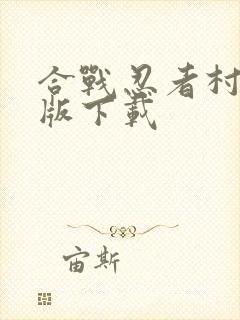 合戰忍者村
版下載
宙斯